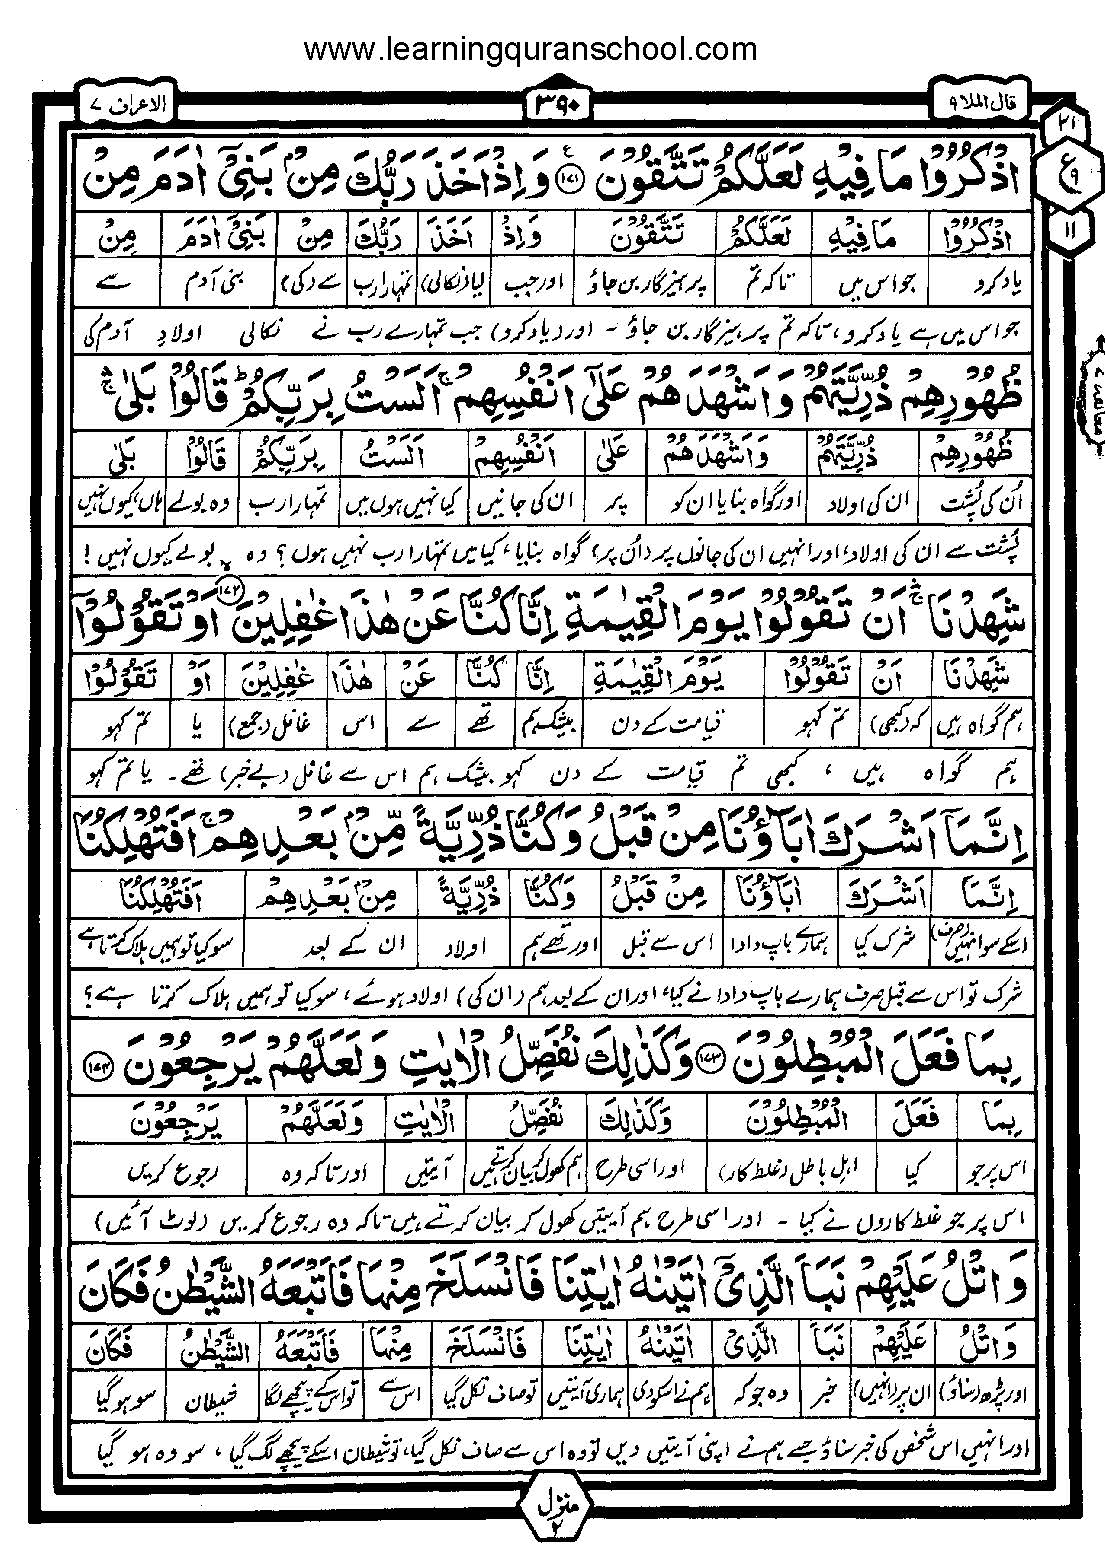 www.learningquranschool.com
قال الملا ۹
۳۹۰
الاعراف ۷
۲۱
ع
۹
۱۱
اذْكُرُوْا مَا فِيْهِ لَعَلَّكُمْ تَتَّقُوْنَ ﴿۱۷۱﴾ وَاِذْ اَخَذَ رَبُّكَ مِنْۢ بَنِيْٓ اٰدَمَ مِنْ
اذْكُرُوْا مَا فِيْهِ لَعَلَّكُمْ تَتَّقُوْنَ وَاِذْ اَخَذَ رَبُّكَ مِنْۢ بَنِيْٓ اٰدَمَ مِنْ
یاد کرو جو اس میں تاکہ تم پرہیزگار بن جاؤ اور جب لیا (نکالی) تمہارا رب سے (کی) بنی آدم سے
جو اس میں ہے یاد کرو، تاکہ تم پرہیزگار بن جاؤ ۔ اور (یاد کرو) جب تمہارے رب نے نکالی اولادِ آدم کی
معانقہ ۷
ظُهُوْرِهِمْ ذُرِّيَّتَهُمْ وَاَشْهَدَهُمْ عَلٰٓى اَنْفُسِهِمْ ۚ اَلَسْتُ بِرَبِّكُمْ ؕ قَالُوْا بَلٰى ۛۚ
ظُهُوْرِهِمْ ذُرِّيَّتَهُمْ وَاَشْهَدَهُمْ عَلٰٓى اَنْفُسِهِمْ اَلَسْتُ بِرَبِّكُمْ قَالُوْا بَلٰى
ان کی پُشت ان کی اولاد اور گواہ بنایا ان کو پر ان کی جانیں کیا نہیں ہوں میں تمہارا رب وہ بولے ہاں، کیوں نہیں
پُشت سے ان کی اولاد، اور انہیں ان کی جانوں پر (اُن پر) گواہ بنایا، کیا میں تمہارا رب نہیں ہوں؟ وہ بولے کیوں نہیں!
شَهِدْنَا ۛۚ اَنْ تَقُوْلُوْا يَوْمَ الْقِيٰمَةِ اِنَّا كُنَّا عَنْ هٰذَا غٰفِلِيْنَ ﴿۱۷۲﴾ اَوْ تَقُوْلُوْٓا
شَهِدْنَا اَنْ تَقُوْلُوْا يَوْمَ الْقِيٰمَةِ اِنَّا كُنَّا عَنْ هٰذَا غٰفِلِيْنَ اَوْ تَقُوْلُوْٓا
ہم گواہ ہیں کہ (کبھی) تم کہو قیامت کے دن بیشک ہم تھے سے اس غافل (جمع) یا تم کہو
ہم گواہ ہیں، کبھی تم قیامت کے دن کہو بیشک ہم اس سے غافل (بے خبر) تھے۔ یا تم کہو
اِنَّمَآ اَشْرَكَ اٰبَآؤُنَا مِنْ قَبْلُ وَكُنَّا ذُرِّيَّةً مِّنْۢ بَعْدِهِمْ ۚ اَفَتُهْلِكُنَا
اِنَّمَآ اَشْرَكَ اٰبَآؤُنَا مِنْ قَبْلُ وَكُنَّا ذُرِّيَّةً مِنْۢ بَعْدِهِمْ اَفَتُهْلِكُنَا
اسکے سوا نہیں (صرف) شرک کیا ہمارے باپ دادا اس سے قبل اور تھے ہم اولاد ان کے بعد سو کیا تو ہمیں ہلاک کرتا ہے
شرک تو اس سے قبل صرف ہمارے باپ دادا نے کیا، اور ان کے بعد ہم (ان کی) اولاد ہوئے، سو کیا تو ہمیں ہلاک کرتا ہے؟
بِمَا فَعَلَ الْمُبْطِلُوْنَ ﴿۱۷۳﴾ وَكَذٰلِكَ نُفَصِّلُ الْاٰيٰتِ وَلَعَلَّهُمْ يَرْجِعُوْنَ ﴿۱۷۴﴾
بِمَا فَعَلَ الْمُبْطِلُوْنَ وَكَذٰلِكَ نُفَصِّلُ الْاٰيٰتِ وَلَعَلَّهُمْ يَرْجِعُوْنَ
اس پر جو کیا اہل باطل (غلط کار) اور اسی طرح ہم کھول کر بیان کرتے ہیں آیتیں اور تاکہ وہ رجوع کریں
اس پر جو غلط کاروں نے کیا ۔ اور اسی طرح ہم آیتیں کھول کر بیان کرتے ہیں تاکہ وہ رجوع کریں (لوٹ آئیں)
وَاتْلُ عَلَيْهِمْ نَبَاَ الَّذِيْٓ اٰتَيْنٰهُ اٰيٰتِنَا فَانْسَلَخَ مِنْهَا فَاَتْبَعَهُ الشَّيْطٰنُ فَكَانَ
وَاتْلُ عَلَيْهِمْ نَبَاَ الَّذِيْٓ اٰتَيْنٰهُ اٰيٰتِنَا فَانْسَلَخَ مِنْهَا فَاَتْبَعَهُ الشَّيْطٰنُ فَكَانَ
اور پڑھ (سناؤ) ان پر (انہیں) خبر وہ جو کہ ہم نے اسکو دی ہماری آیتیں تو صاف نکل گیا اس سے تو اس کے پیچھے لگا شیطان سو ہو گیا
اور انہیں اس شخص کی خبر سناؤ جسے ہم نے اپنی آیتیں دیں تو وہ اس سے صاف نکل گیا، تو شیطان اسکے پیچھے لگ گیا، سو وہ ہو گیا
منزل ۲